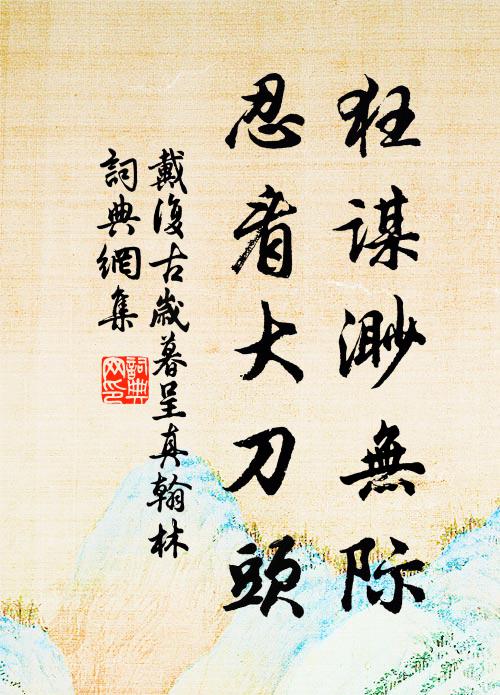 狂謀渺無际
忍看大刀頭
戴復古歲暮呈真翰林
詞典網集
詞典網印